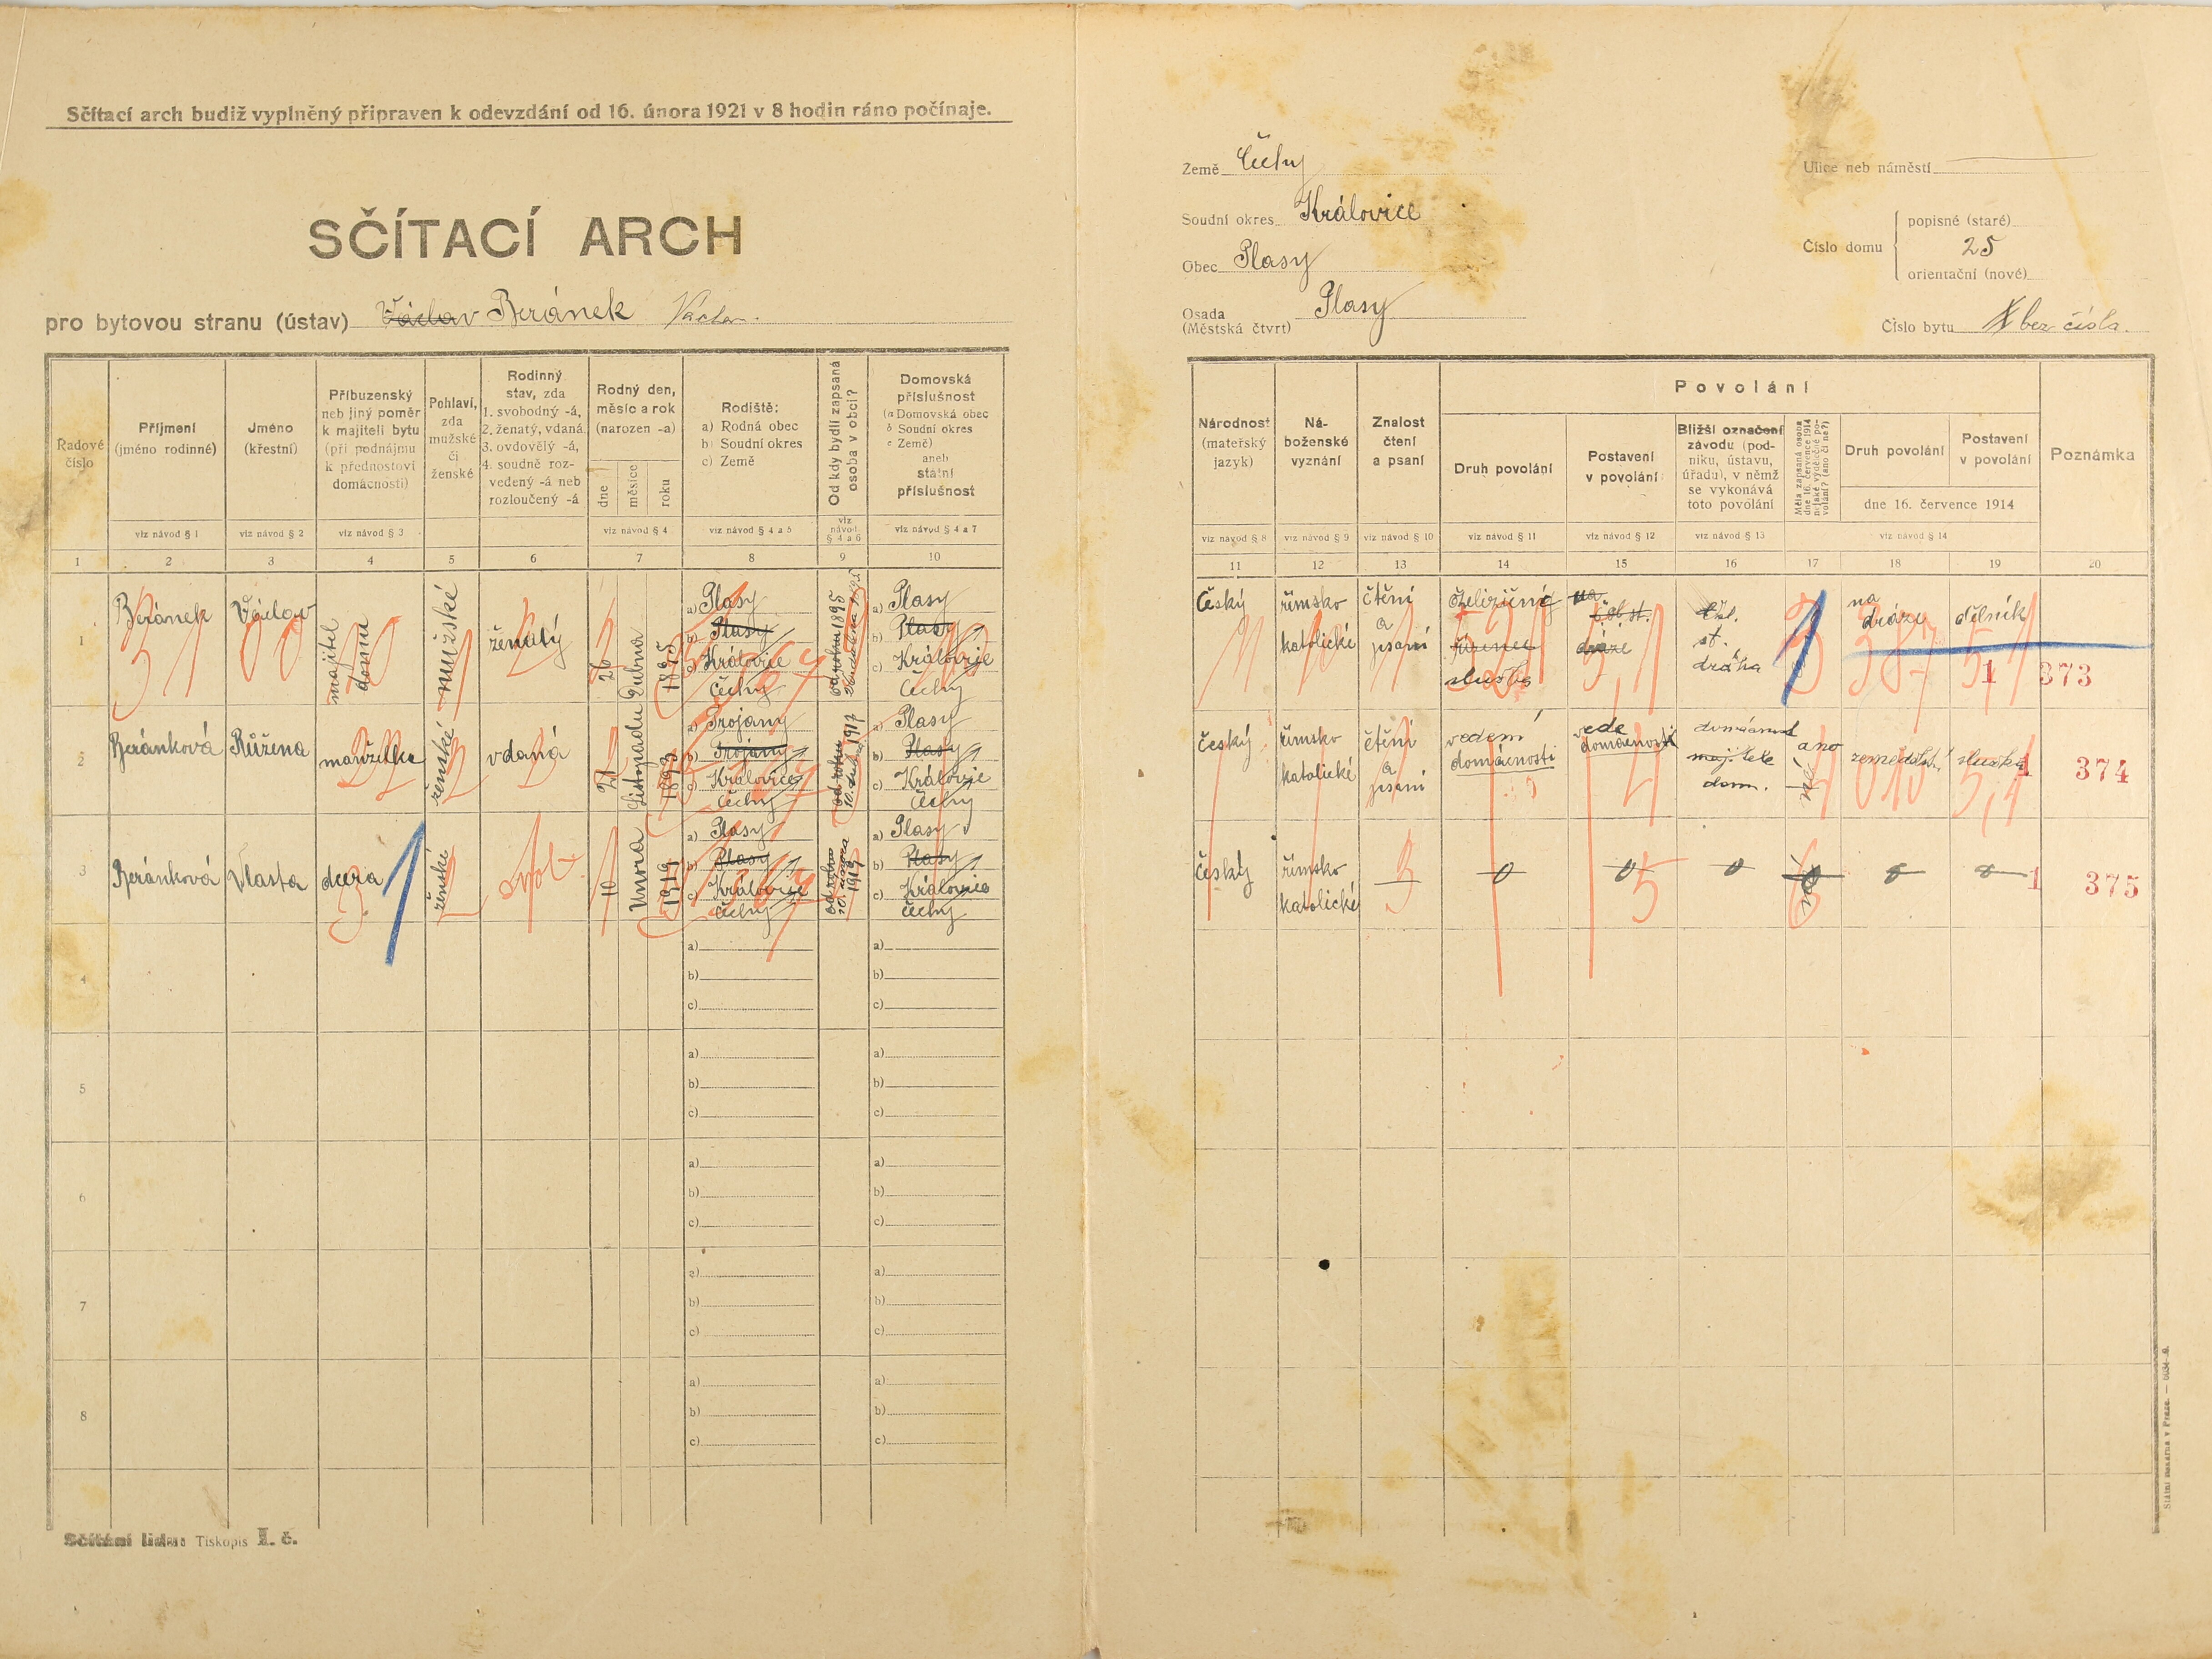 Sčítací arch budiž vyplněný připraven k odevzdání od 16. února 1921 v 8 hodin ráno počínaje.
SČÍTACÍ ARCH
pro bytovou stranu (ústav) Václav Beránek Václav.
Země Čechy
Soudní okres Královice
Obec Plasy
Osada Plasy
(Městská čtvrt)
Ulice neb náměstí
Číslo domu
popisné (staré)
25
orientační (nové)
Číslo bytu bez čísla.
Řadové číslo
Příjmení (jméno rodinné)
Jméno (křestní)
Příbuzenský neb jiný poměr k majiteli bytu (při podnájmu k přednostovi domácnosti)
Pohlaví, zda mužské či ženské
Rodinný stav, zda 1. svobodný -á, 2. ženatý, vdaná, 3. ovdovělý -á, 4. soudně rozvedený -á neb rozloučený -á
Rodný den, měsíc a rok (narozen -a)
dne
měsíce
roku
Rodiště:
a) Rodná obec
b) Soudní okres
c) Země
Od kdy bydlí zapsaná osoba v obci?
Domovská příslušnost
(a Domovská obec
b Soudní okres
c Země)
aneb státní příslušnost
viz návod § 1
viz návod § 2
viz návod § 3
viz návod § 4
viz návod § 4 a 5
viz návod § 4 a 6
viz návod § 4 a 7
1 2 3 4 5 6 7 8 9 10
Národnost (mateřský jazyk)
Náboženské vyznání
Znalost čtení a psaní
Povolání
Druh povolání
Postavení v povolání
Bližší označení závodu (podniku, ústavu, úřadu), v němž se vykonává toto povolání
Měla zapsaná osoba dne 16. července 1914 nějaké výdělečné povolání? (ano či ne?)
Druh povolání
Postavení v povolání
dne 16. července 1914
Poznámka
viz návod § 8
viz návod § 9
viz návod § 10
viz návod § 11
viz návod § 12
viz návod § 13
viz návod § 14
11 12 13 14 15 16 17 18 19 20
1
Beránek
Václav
majitel domu
mužské
ženatý
26
Dubna
1895
a) Plasy
b) Plasy
c) Královice
Čechy
od roku 1895
a) Plasy
b) Plasy
c) Královice
Čechy
Český
římsko katolické
čtění a psaní
služba
na
dráze
st.
dráha
na dráze
dělník
373
2
Beránková
Růžena
manželka
ženské
vdaná
21
Listopadu
1893
a) Trojany
b) Trojany
c) Královice
Čechy
od roku 1917
a) Plasy
b) Plasy
c) Královice
Čechy
český
římsko katolické
čtění a psaní
vedení domácnosti
vede domácnost
dom.
ano
služka
374
3
Beránková
Vlasta
dcera
ženské
svob.
10
Února
1919
a) Plasy
b) Plasy
c) Královice
Čechy
1919
a) Plasy
b) Plasy
c) Královice
Čechy
český
římsko katolické
ne
375
4
a)
b)
c)
a)
b)
c)
5
a)
b)
c)
a)
b)
c)
6
a)
b)
c)
a)
b)
c)
7
a)
b)
c)
a)
b)
c)
8
a)
b)
c)
a)
b)
c)
Sčítání lidu: Tiskopis I. č.